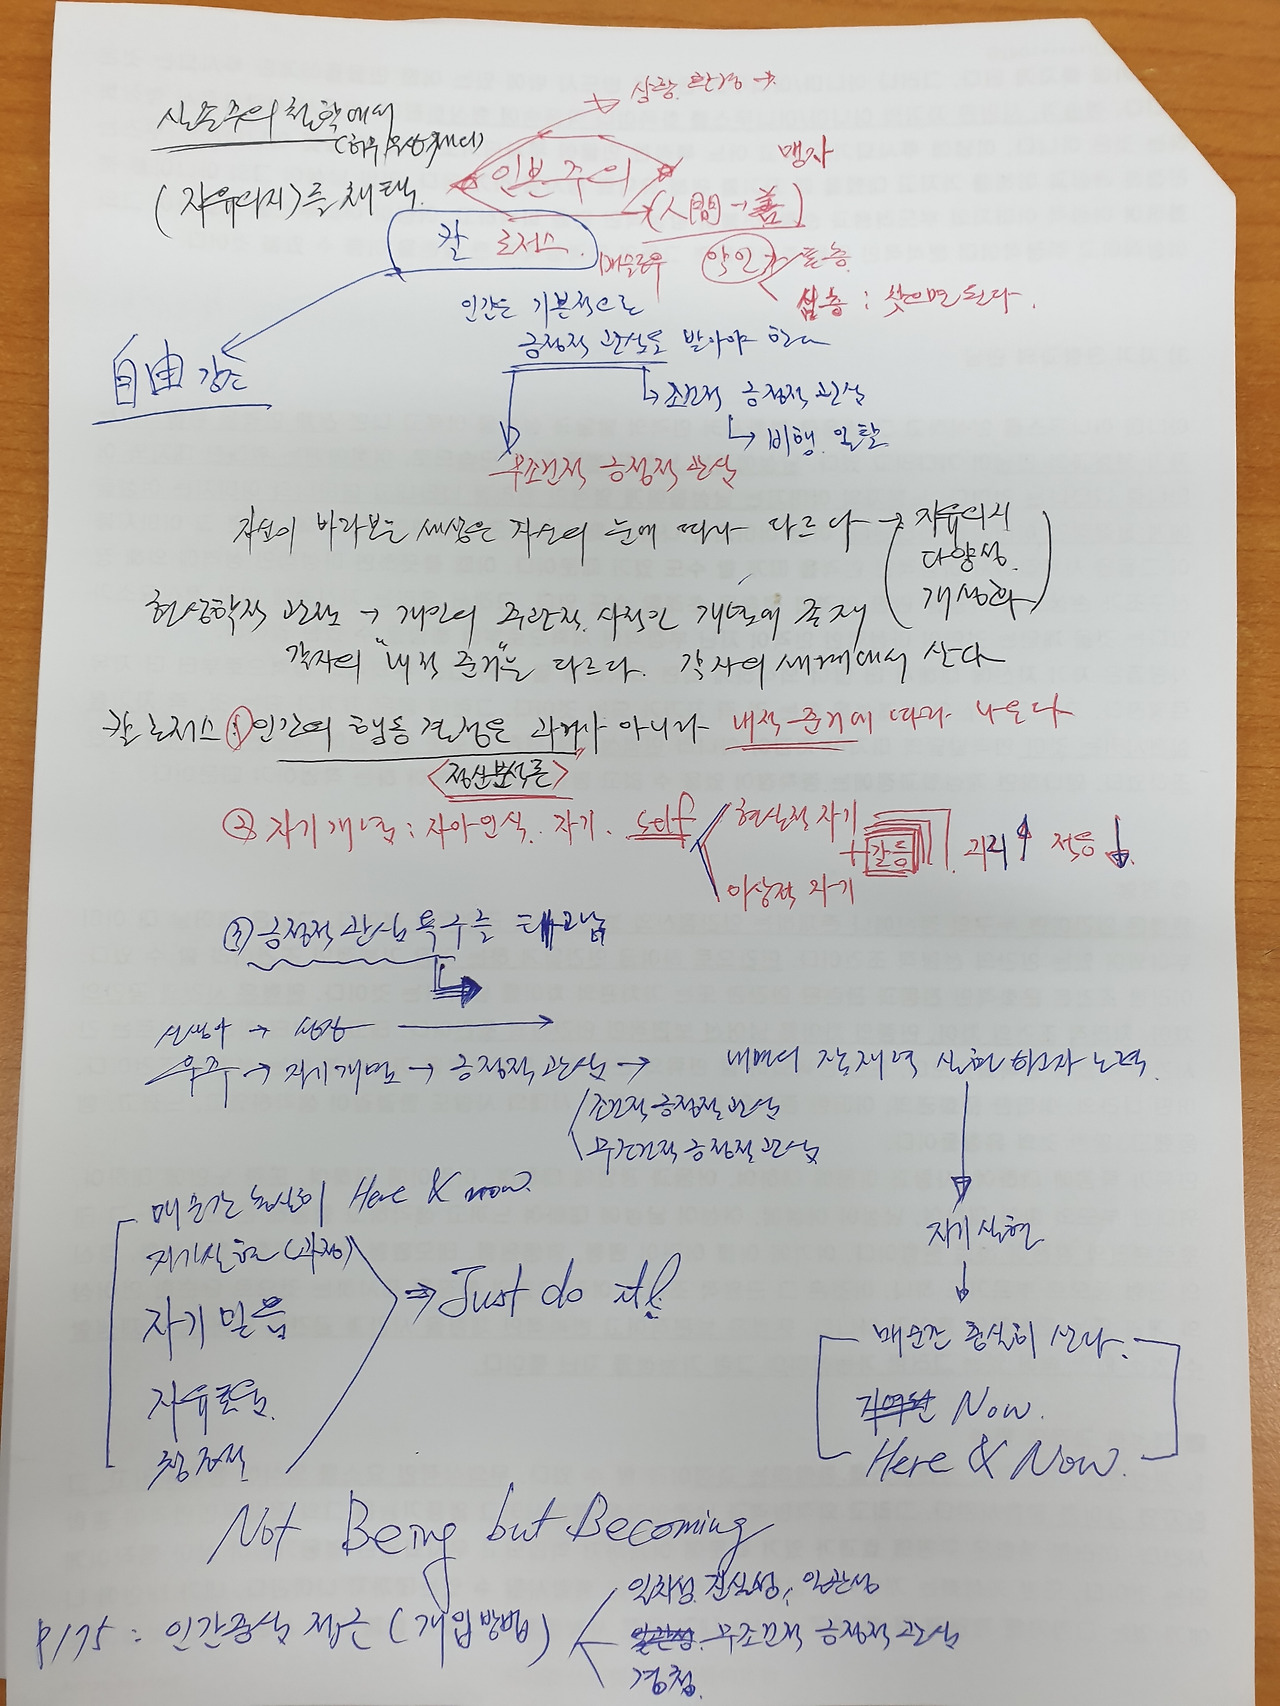 실존주의 철학에서
(자유의지)를 채택.
인본주의
맹자
(人間→善)
칼 로저스.
매슬로우
악인
표층
심층 : 찾으면 된다.
인간은 기본적으로
긍정적 관심을 받아야 한다
自由 강조
조건적 긍정적 관심
→ 비행. 일탈
무조건적 긍정적 관심
자신이 바라보는 세상은 자신의 눈에 따라 다르다 → 자유의지
다양성.
개성화
현상학적 관점 → 개인의 주관적. 사적인 개념에 존재
각자의 "내적 준거"는 다르다. 각자의 세계에서 산다
칼 로저스 ① 인간의 행동 결정은 과거가 아니라 내적 준거에 따라 나온다
<정신분석론>
② 자기개념 : 자아인식. 자기. self
현실적 자기
갈등
괴리↑ 적응↓
이상적 자기
③ 긍정적 관심 욕구를 타고남
신생아 → 성장 →
욕구 → 자기개념 → 긍정적 관심 → 내면의 잠재력 실현하고자 노력.
조건적 긍정적 관심
무조건적 긍정적 관심
매순간 충실히 Here & now.
자기실현(과정)
자기 믿음
⇒ Just do it!
자유로움.
창조적
자기실현
↓
매순간 충실히 산다.
Now.
Here & Now.
Not Being but Becoming
P175 : 인간중심 접근 (개입방법)
일치성. 진실성, 일관성
일관성. 무조건적 긍정적 관심
경청.